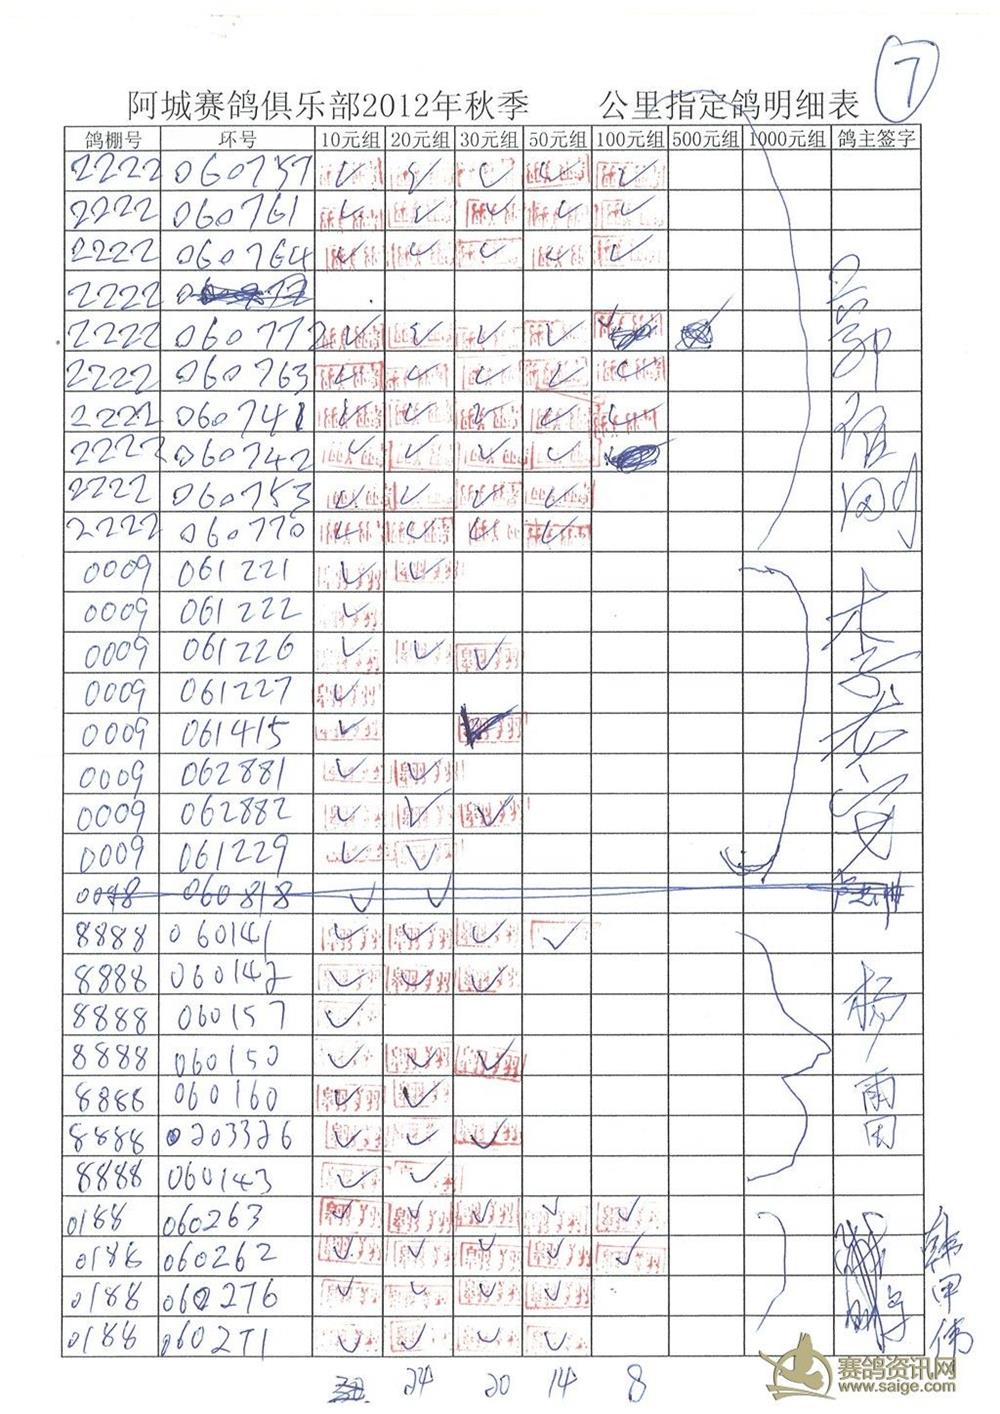 7
阿城赛鸽俱乐部2012年秋季 公里指定鸽明细表
鸽棚号 环号 10元组 20元组 30元组 50元组 100元组 500元组 1000元组 鸽主签字
2222 060757
2222 060761
2222 060764
2222
2222 060772
2222 060763
2222 060741
2222 060742
2222 060753
2222 060770
0009 061221
0009 061222
0009 061226
0009 061227
0009 061415
0009 062881
0009 062882
0009 061229
060818
8888 060141
8888 060142
8888 060157
8888 060150
8888 060160
8888 0203326
8888 060143
0188 060263
0188 060262
0188 060276
0188 060271
24 20 14 8
赛鸽资讯网
www.saige.com